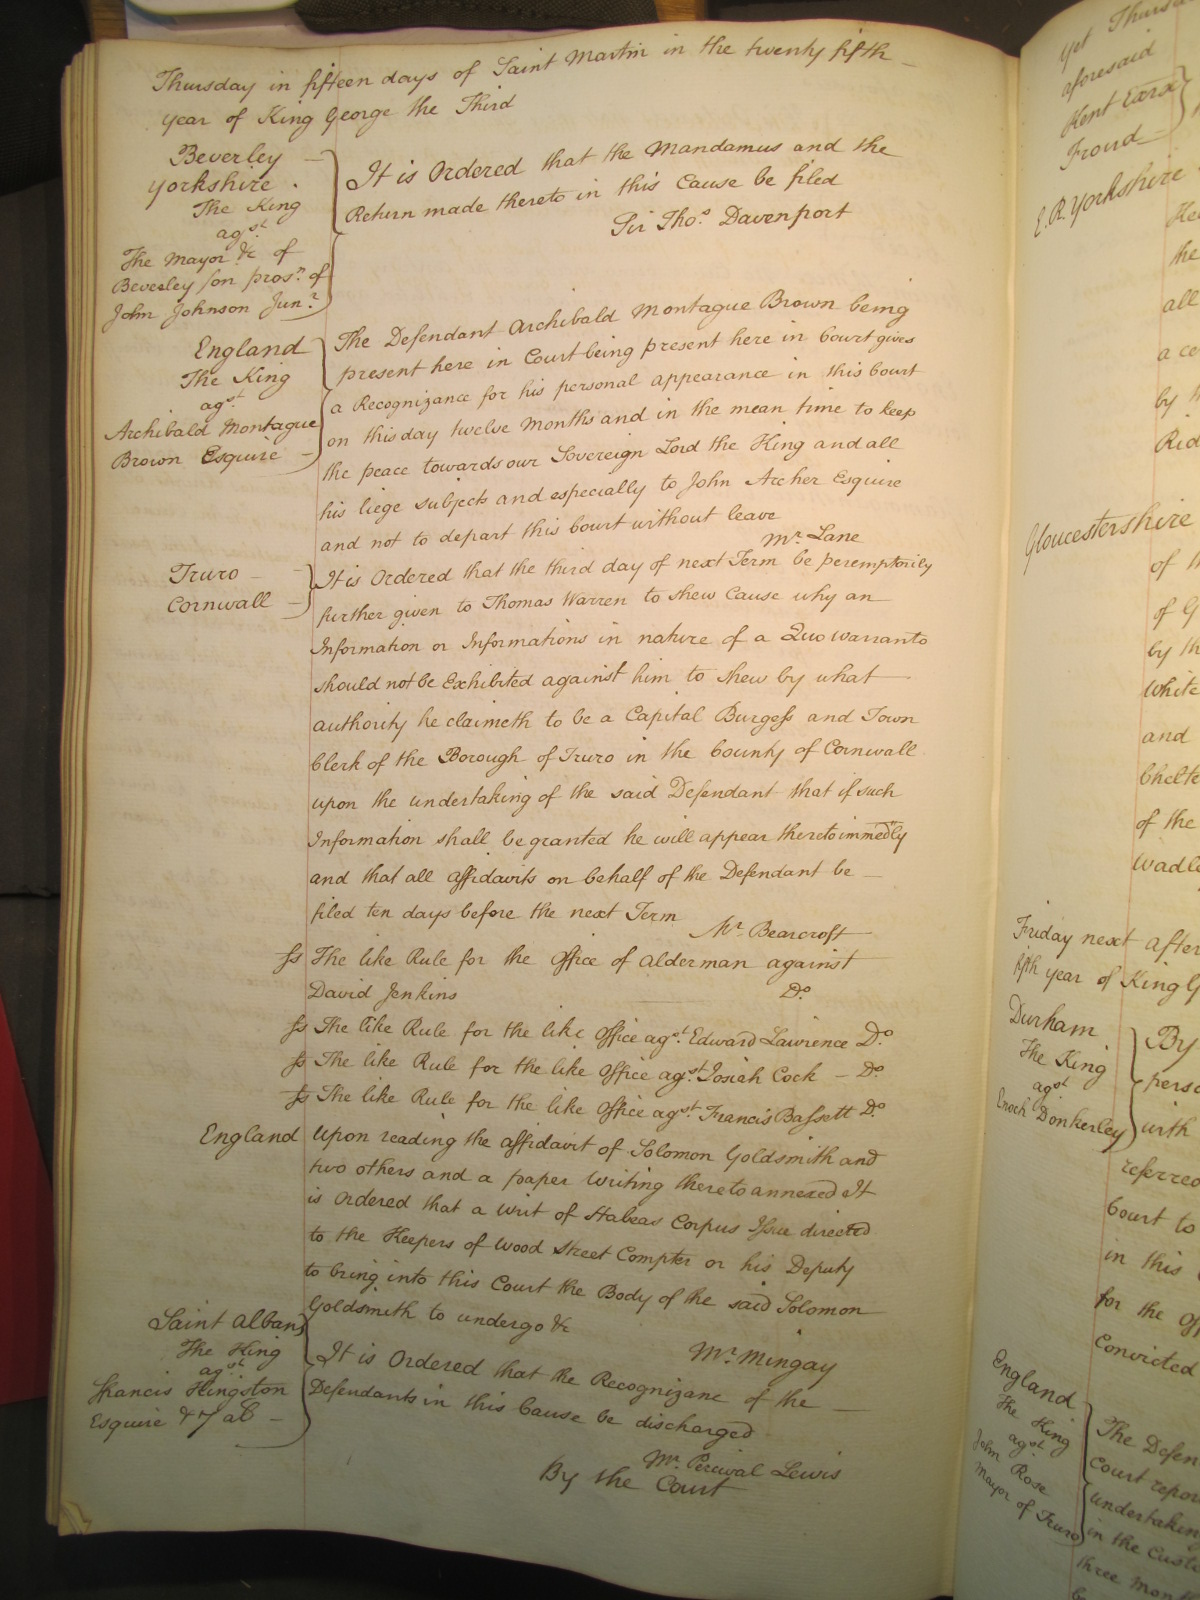 Thursday in fifteen days of Saint Martin in the twenty fifth
year of King George the Third
Beverley
Yorkshire.
The King
agst.
The Mayor &c of
Beverley on pros.n of
John Johnson Jun.r
It is Ordered that the Mandamus and the
Return made thereto in this Cause be filed
Sir Tho.s Davenport
England
The King
agst.
Archibald Montague
Brown Esquire
The Defendant Archibald Montague Brown being
present here in Court being present here in Court gives
a Recognizance for his personal appearance in this Court
on this day twelve Months and in the mean time to keep
the peace towards our Sovereign Lord the King and all
his liege subjects and especially to John Archer Esquire
and not to depart this Court without leave
Mr. Lane
Truro
Cornwall
It is Ordered that the third day of next Term be peremptorily
further given to Thomas Warren to shew Cause why an
Information or Informations in nature of a Quo warranto
should not be Exhibited against him to shew by what
authority he claimeth to be a Capital Burgess and Town
Clerk of the Borough of Truro in the County of Cornwall
upon the undertaking of the said Defendant that if such
Information shall be granted he will appear thereto immedly
and that all affidavits on behalf of the Defendant be
filed ten days before the next Term
Mr. Bearcroft
ss The like Rule for the Office of Alderman against
David Jenkins Do.
ss The like Rule for the like Office agst. Edward Lawrence Do.
ss The like Rule for the like Office agst. Josiah Cock - Do.
ss The like Rule for the like Office agst. Francis Bassett Do.
England
Upon reading the affidavit of Solomon Goldsmith and
two others and a paper Writing thereto annexed It
is Ordered that a Writ of Habeas Corpus Issue directed
to the Keepers of Wood Street Compter or his Deputy
to bring into this Court the Body of the said Solomon
Goldsmith to undergo &c
Mr. Mingay
Saint Albans
The King
agst.
Francis Kingston
Esquire & 7 al
It is Ordered that the Recognizane of the
Defendants in this Cause be discharged
Mr. Percival Lewis
By the Court
yet Thursday
aforesaid
Kent
Froud
E.R. Yorkshire
the
all
a ce
by
Rid
Gloucestershire
of
of G
by th
White
and
Chelte
of the
Wadle
Friday next after
fifth year of King G
Durham
The King
agst
Enoch Donkerley
By
perso
with
referred
Court to
in this
for the Off
Convicted
England
The King
agst.
John Rose
Mayor of Truro
The Defen
Court repor
undertaking
in the Custo
three Mon